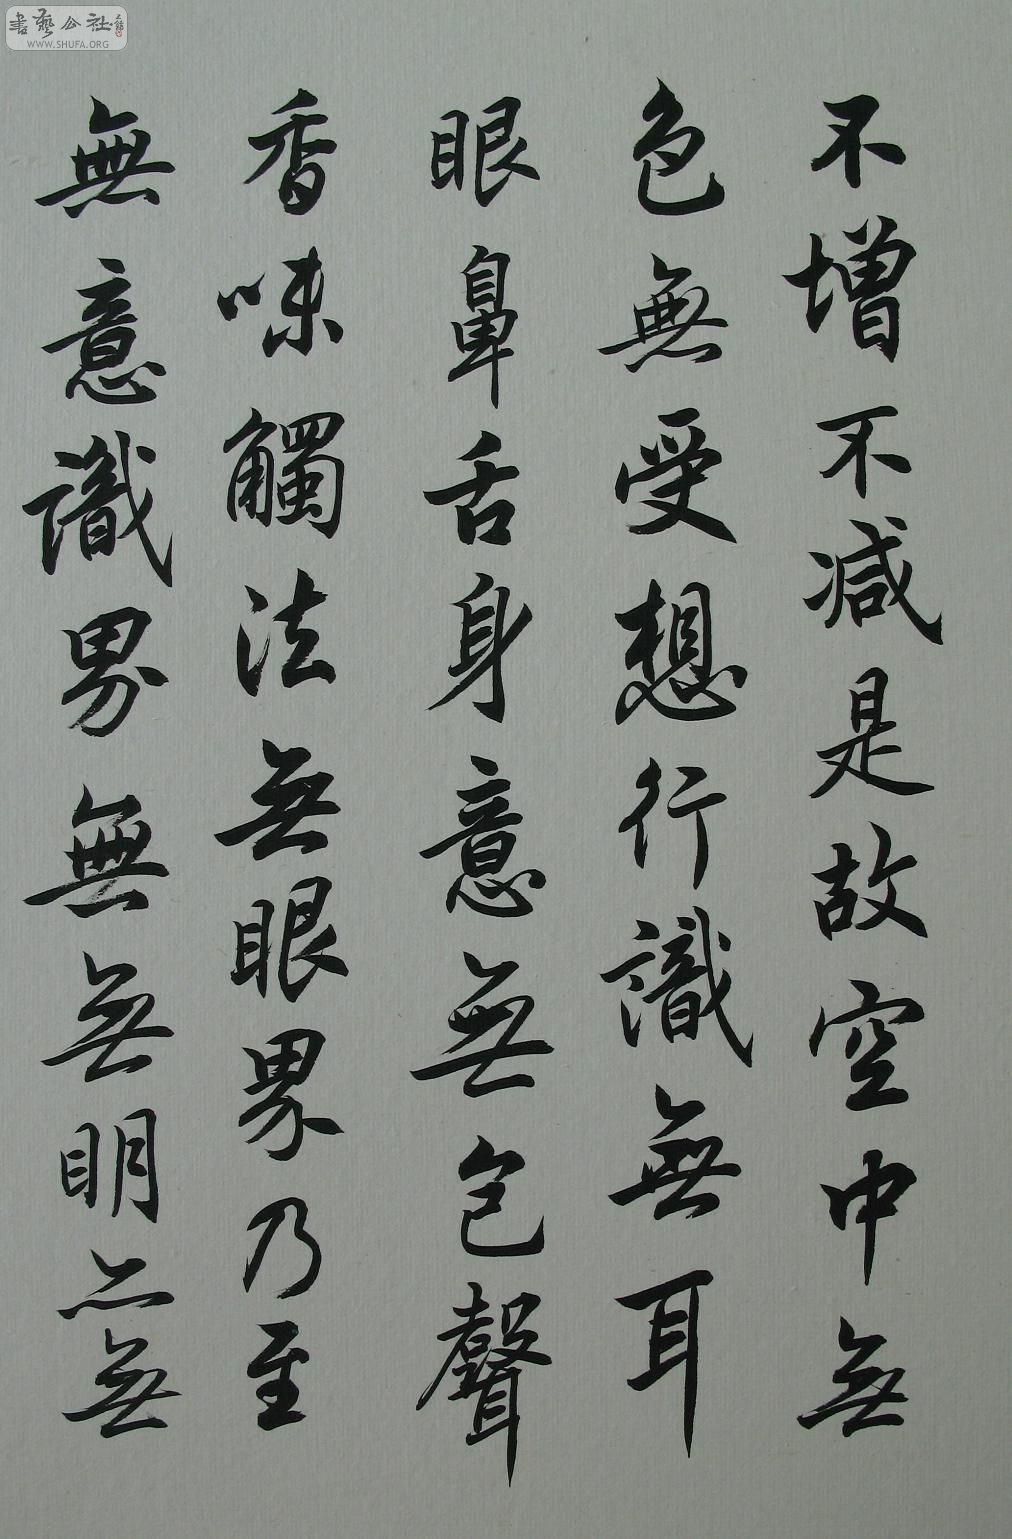 不增不减是故空中無
色無受想行識無耳
眼鼻舌身意無色聲
香味觸法無眼界乃至
無意識界無無明亦無
書藝公社
WWW.SHUFA.ORG